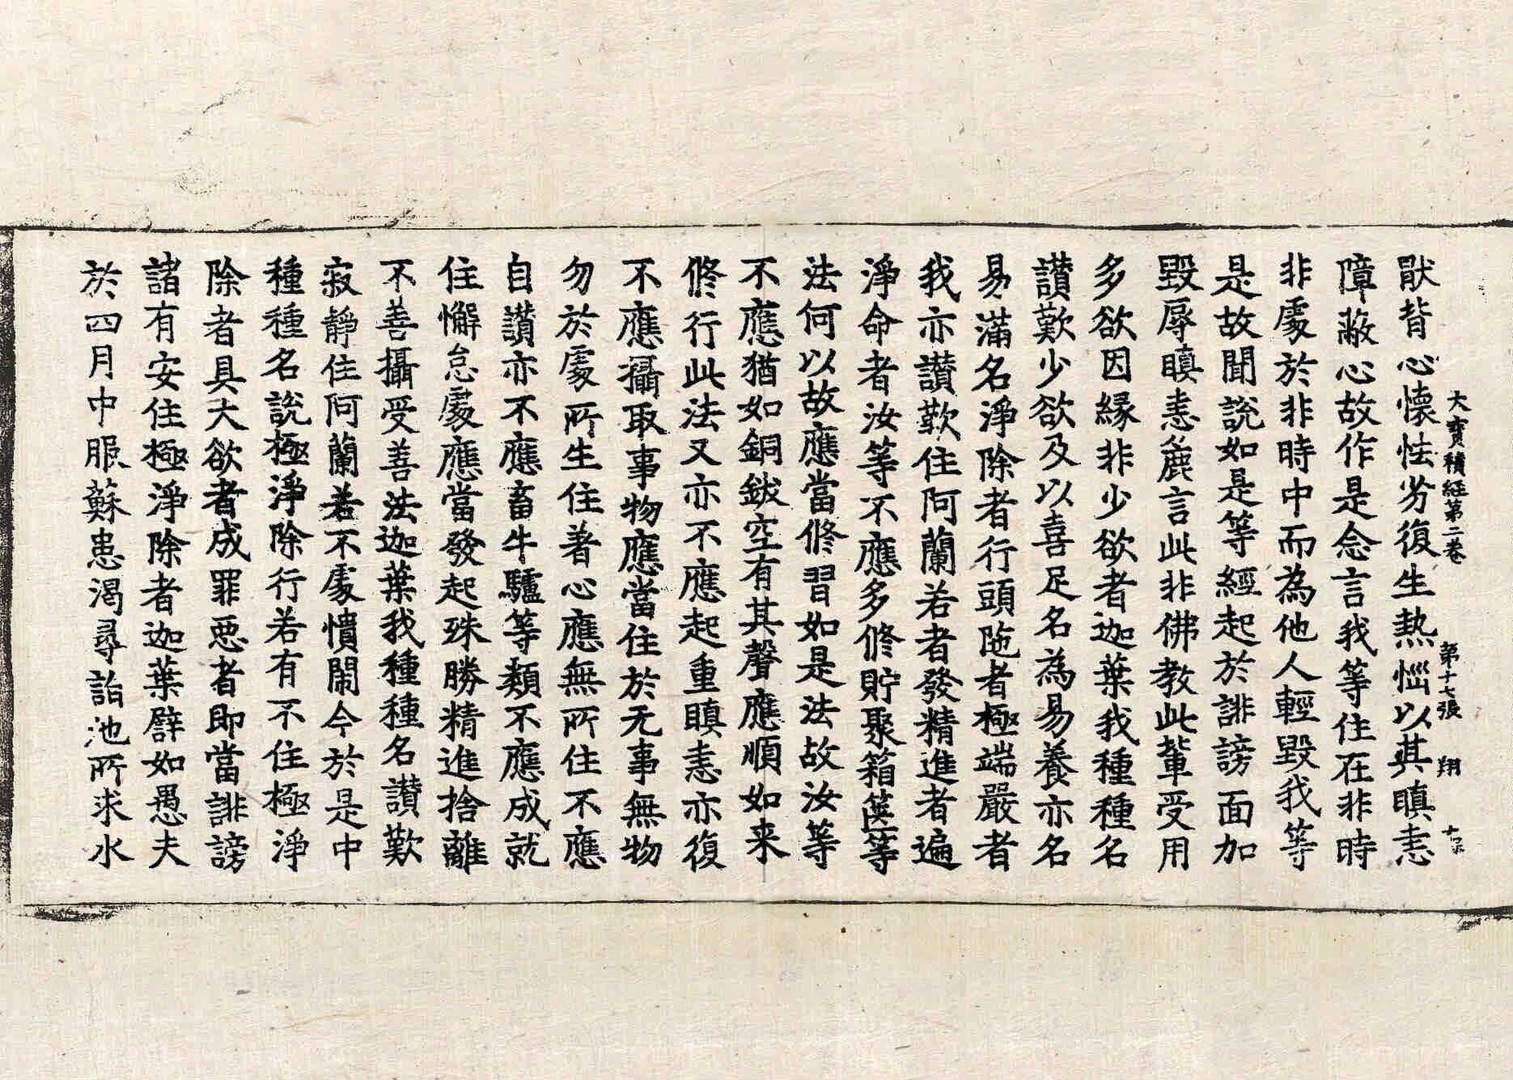 大寶積經第二卷　第十七張　翔
猒背心懷怯劣復生熱惱以其瞋恚
障蔽心故作是念言我等住在非時
非處於非時中而為他人輕毀我等
是故聞說如是等經起於誹謗面加
毀辱瞋恚麁言此非佛教此輩受用
多欲因緣非少欲者迦葉我種種名
讃歎少欲及以喜足名為易養亦名
易滿名淨除者行頭陁者極端嚴者
我亦讃歎住阿蘭若者發精進者遍
淨命者汝等不應多修貯聚箱篋等
法何以故應當修習如是法故汝等
不應猶如銅鈸空有其聲應順如来
修行此法又亦不應起重瞋恚亦復
不應攝取事物應當住於无事無物
勿於處所生住著心應無所住不應
自讃亦不應畜牛驢等類不應成就
住懈怠處應當發起殊勝精進捨離
不善攝受善法迦葉我種種名讃歎
寂靜住阿蘭若不處憒閙今於是中
種種名說極淨除行若有不住極淨
除者具大欲者成罪惡者即當誹謗
諸有安住極淨除者迦葉譬如愚夫
於四月中服蘇患渴尋詣池所求水